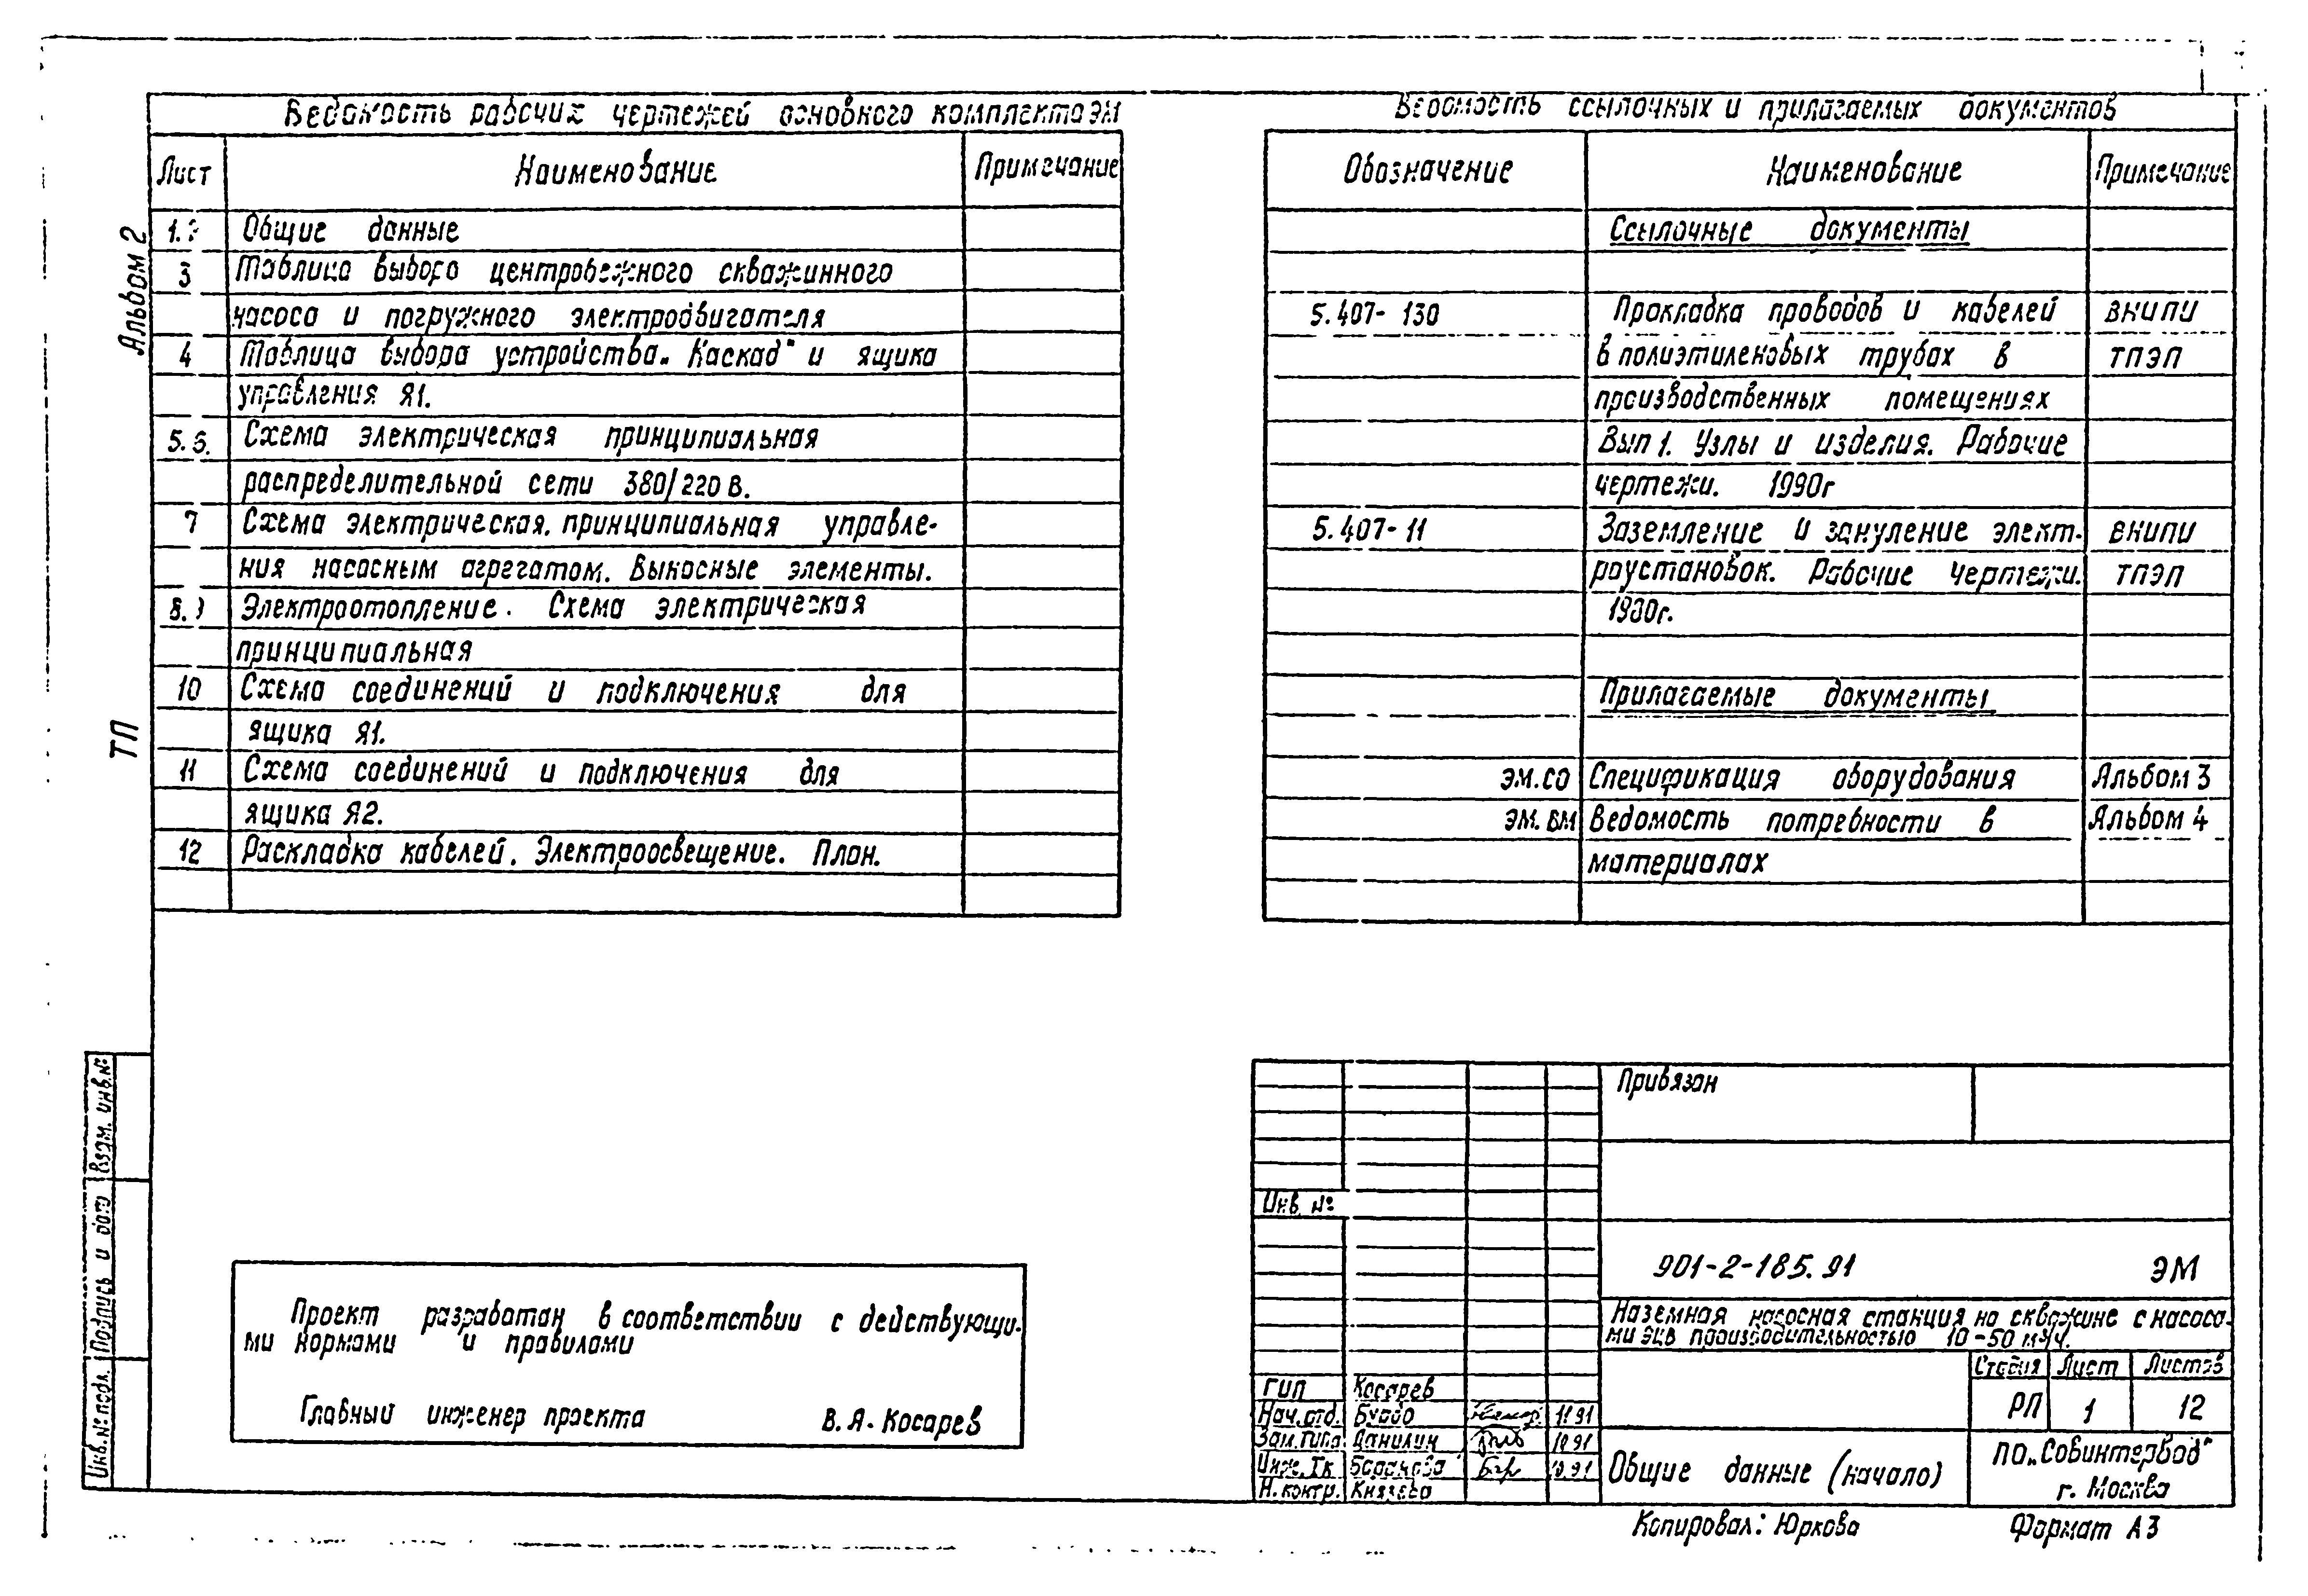 Ведомость рабочих чертежей основного комплекта ЭМ
Лист Наименование Примечание
1.2 Общие данные
3 Таблица выбора центробежного скважинного
насоса и погружного электродвигателя
4 Таблица выбора устройства „Каскад" и ящика
управления Я1.
5.6. Схема электрическая принципиальная
распределительной сети 380/220 В.
7 Схема электрическая принципиальная управле-
ния насосным агрегатом. Выносные элементы.
8.9 Электроотопление. Схема электрическая
принципиальная
10 Схема соединений и подключения для
ящика Я1.
11 Схема соединений и подключения для
ящика Я2.
12 Раскладка кабелей. Электроосвещение. План.
Ведомость ссылочных и прилагаемых документов
Обозначение Наименование Примечание
Ссылочные документы
5.407-130 Прокладка проводов и кабелей ВНИПИ
в полиэтиленовых трубах в ТПЭП
производственных помещениях
Вып 1. Узлы и изделия. Рабочие
чертежи. 1990г
5.407-11 Заземление и зануление элект- ВНИПИ
роустановок. Рабочие чертежи. ТПЭП
Прилагаемые документы
ЭМ.СО Спецификация оборудования Альбом 3
ЭМ.ВМ Ведомость потребности в Альбом 4
материалах
Альбом 2
ТП
Взам. инв.№
Подпись и дата
Инв.№ подл.
Проект разработан в соответствии с действующи-
ми нормами и правилами
Главный инженер проекта В.Я.Косарев
Привязан
Инв. №
901-2-185.91 ЭМ
Наземная насосная станция на скважине с насоса-
ми ЭЦВ производительностью 10-50 м³/ч.
Стадия Лист Листов
РП 1 12
ГИП Косарев
Нач.отд. 11.91
Зам.гипа Данилин 10.91
Инж.Iк Баранова 10.91
Н.контр. Князева
Общие данные (начало)
ПО „Совинтервод"
г. Москва
Копировал: Юркова Формат А3